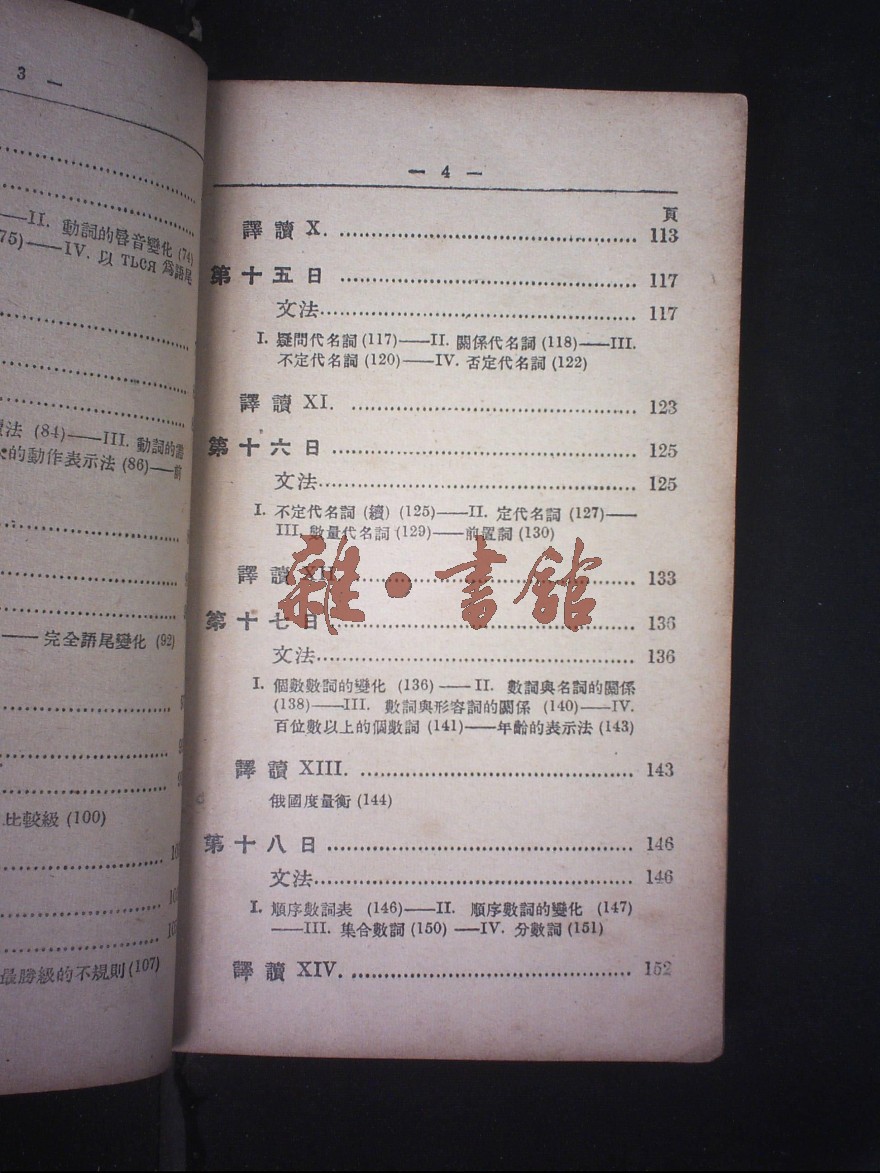 3 —
II. 動詞的唇音變化 (74)
75)——IV. 以 ться 為語尾
法 (84)——III. 動詞的
的動作表示法 (86)——前
—— 完全語尾變化 (92)
比較級 (100)
最勝級的不規則 (107)
— 4 —
頁
譯讀 X. 113
第十五日 117
文法 117
I. 疑問代名詞 (117)——II. 關係代名詞 (118)——III.
不定代名詞 (120)——IV. 否定代名詞 (122)
譯讀 XI. 123
第十六日 125
文法 125
I. 不定代名詞 (續) (125)——II. 定代名詞 (127)——
III. 數量代名詞 (129)——前置詞 (130)
譯讀 XII. 133
雜·書館
第十七日 136
文法 136
I. 個數數詞的變化 (136) ——II. 數詞與名詞的關係
(138)——III. 數詞與形容詞的關係 (140)——IV.
百位數以上的個數詞 (141)——年齡的表示法 (143)
譯讀 XIII. 143
俄國度量衡 (144)
第十八日 146
文法 146
I. 順序數詞表 (146)——II. 順序數詞的變化 (147)
——III. 集合數詞 (150) —IV. 分數詞 (151)
譯讀 XIV. 152